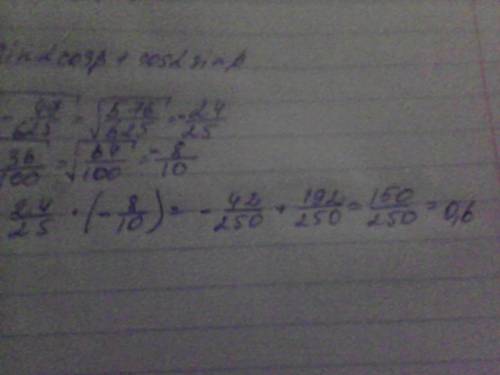 sinα cosβ + cosα sinβ
- 49/625 = √576/625 = - 24/25
36/100 = √64/100 = - 8/10
24/25 · (- 8/10) = - 42/250 + 192/250 = 150/250 = 0,6